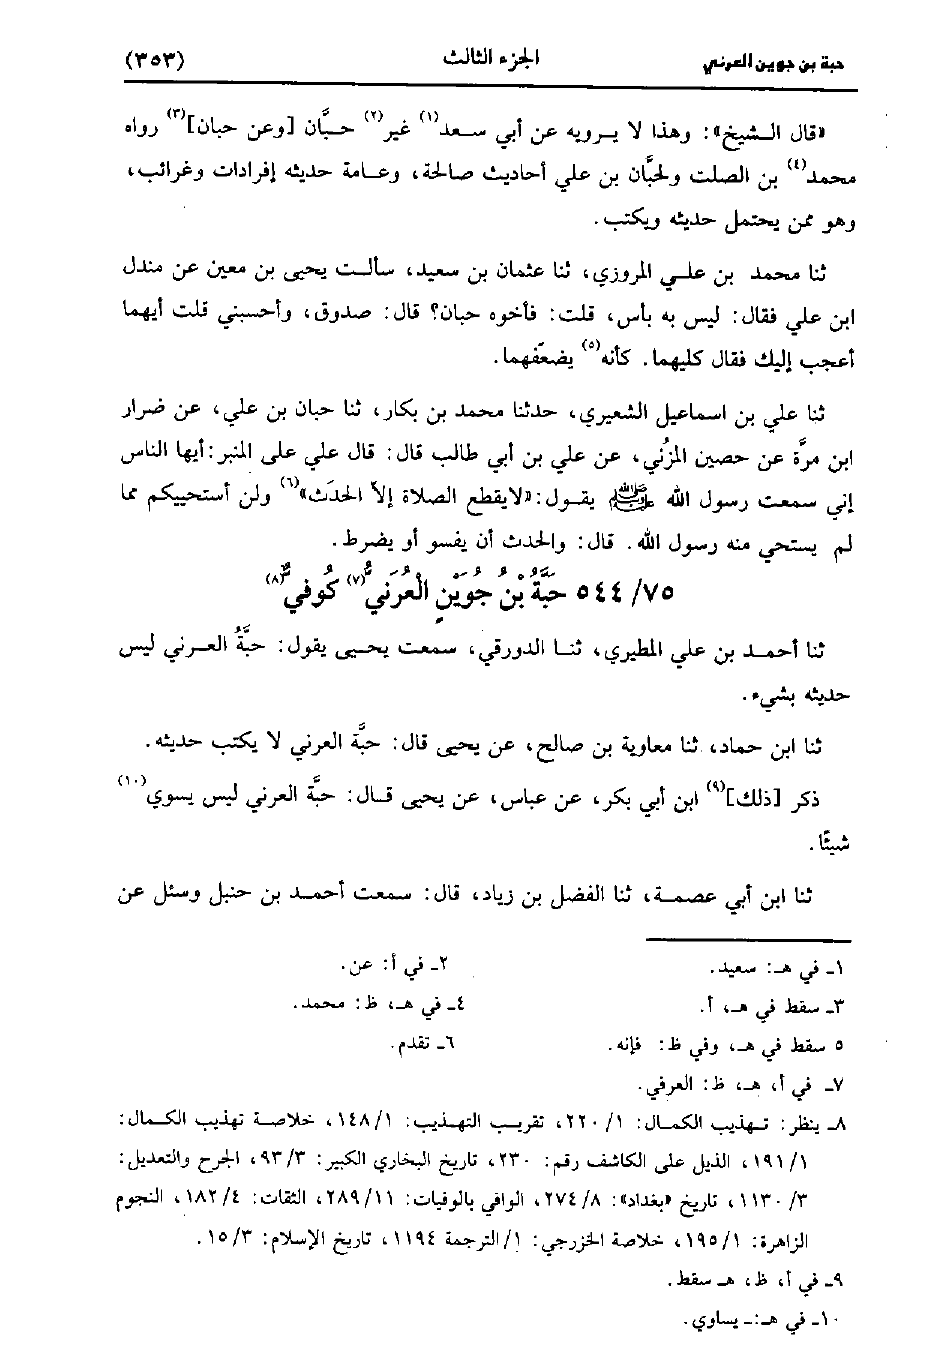 حبة بن جوين العرني الجزء الثالث (٣٥٣)
«قال الشيخ»: وهذا لا يرويه عن أبي سعد(١) غير(٢) حبَّان [وعن حبان](٣) رواه
محمد(٤) بن الصلت ولحبَّان بن علي أحاديث صالحة، وعامة حديثه إفرادات وغرائب،
وهو ممن يحتمل حديثه ويكتب.
ثنا محمد بن علي المروزي، ثنا عثمان بن سعيد، سألت يحيى بن معين عن مندل
ابن علي فقال: ليس به بأس، قلت: فأخوه حبان؟ قال: صدوق، وأحسبني قلت أيهما
أعجب إليك فقال كليهما. كأنه(٥) يضعّفهما.
ثنا علي بن اسماعيل الشعيري، حدثنا محمد بن بكار، ثنا حبان بن علي، عن ضرار
ابن مرَّة عن حصين المزُني، عن علي بن أبي طالب قال: قال علي على المنبر: أيها الناس
إني سمعت رسول الله ﷺ يقول: «لايقطع الصلاة إلاّ الحدَث»(٦) ولن أستحييكم مما
لم يستحي منه رسول الله. قال: والحدث أن يفسو أو يضرط.
٧٥/ ٥٤٤ حبَّةُ بْنُ جُوَيْنٍ العُرَنيُّ(٧) كُوفيٌّ(٨)
ثنا أحمد بن علي المطيري، ثنا الدورقي، سمعت يحيى يقول: حبَّةُ العرني ليس
حديثه بشيء.
ثنا ابن حماد، ثنا معاوية بن صالح، عن يحيى قال: حبَّة العرني لا يكتب حديثه.
ذكر [ذلك](٩) ابن أبي بكر، عن عباس، عن يحيى قال: حبَّة العرني ليس يسوي(١٠)
شيئًا.
ثنا ابن أبي عصمة، ثنا الفضل بن زياد، قال: سمعت أحمد بن حنبل وسئل عن
١ـ في هـ: سعيد. ٢ـ في أ: عن.
٣ـ سقط في هـ، أ. ٤ـ في هـ، ظ: محمد.
٥ سقط في هـ، وفي ظ: فإنه. ٦ـ تقدم.
٧ـ في أ، هـ، ظ: العرفي.
٨ـ ينظر: تهذيب الكمال: ١/ ٢٢٠، تقريب التهذيب: ١٤٨/١، خلاصة تهذيب الكمال:
١/ ١٩١، الذيل على الكاشف رقم: ٢٣٠، تاريخ البخاري الكبير: ٩٣/٣، الجرح والتعديل:
٣/ ١١٣٠، تاريخ «بغداد»: ٨/ ٢٧٤، الوافي بالوفيات: ١١/ ٢٨٩، الثقات: ٤/ ١٨٢، النجوم
الزاهرة: ١/ ١٩٥، خلاصة الخزرجي: ١/ الترجمة ١١٩٤، تاريخ الإسلام: ١٥/٣.
٩ـ في أ، ظ، هـ سقط.
١٠ـ في هـ:ـ يساوي.